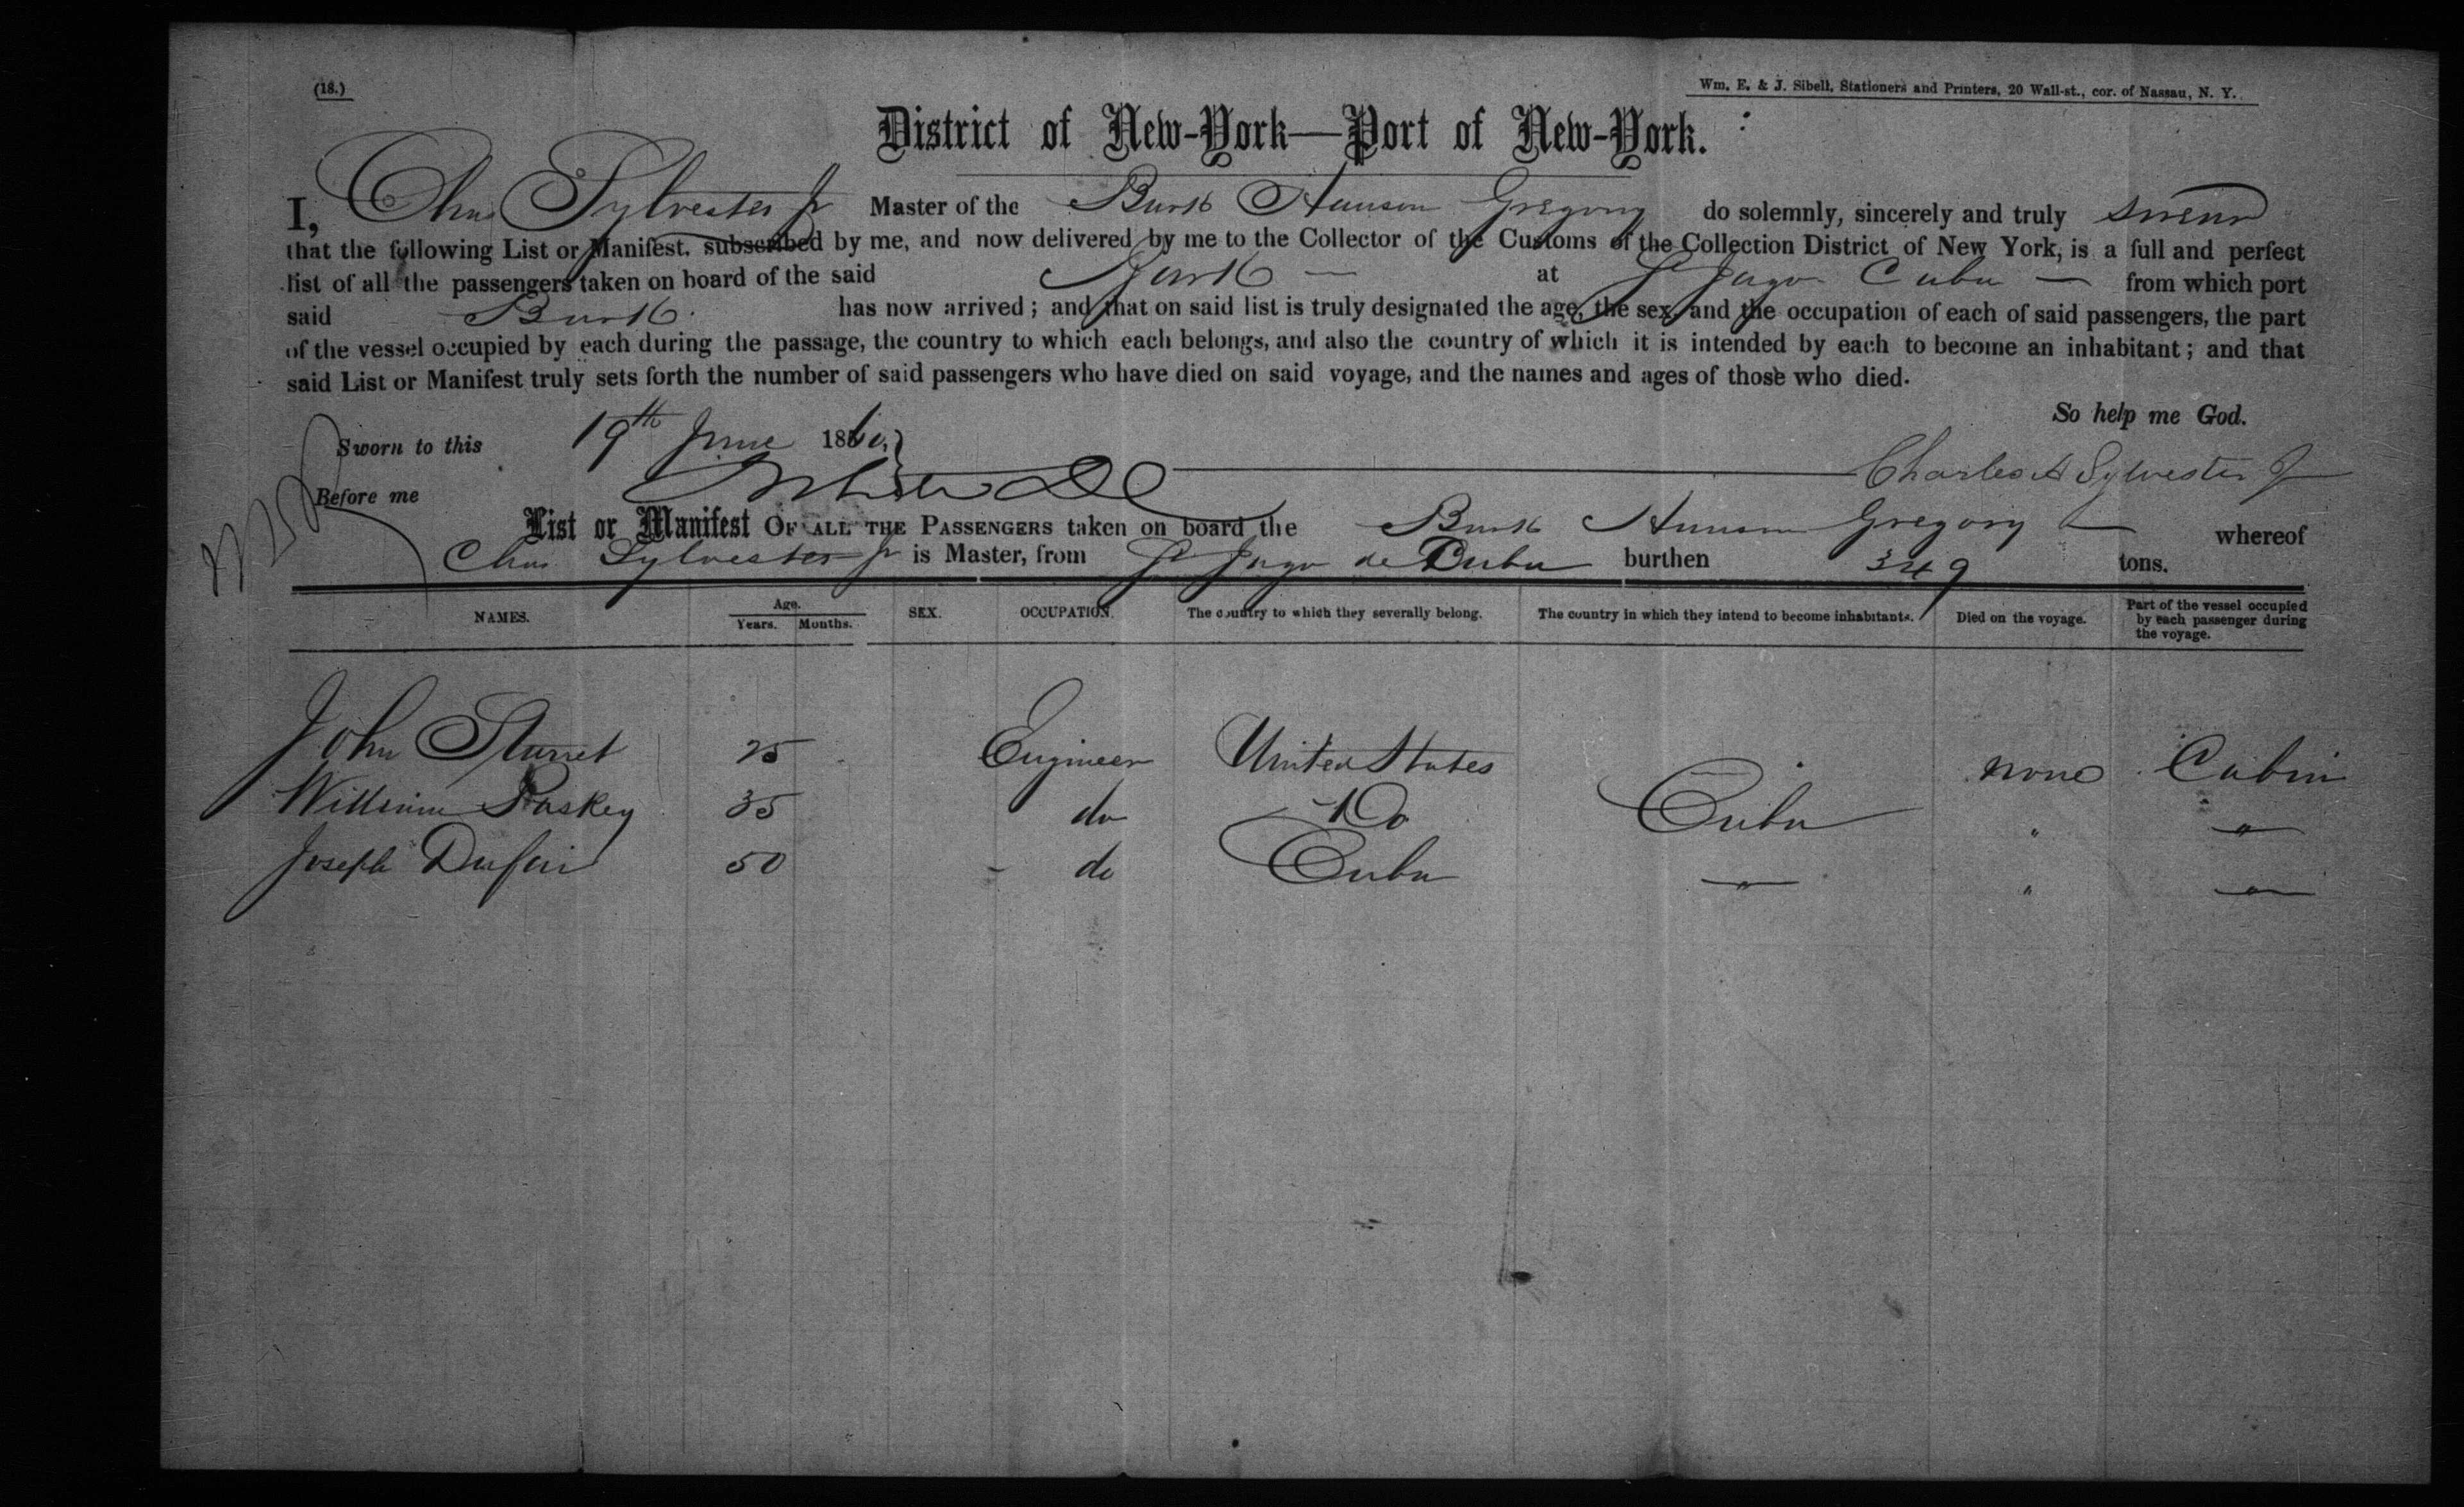 (18.)
Wm. E. & J. Sibell, Stationers and Printers, 20 Wall-st., cor. of Nassau, N. Y.
District of New-York—Port of New-York.
I, Chas Sylvester Jr Master of the Bark Hanson Gregory do solemnly, sincerely and truly swear
that the following List or Manifest, subscribed by me, and now delivered by me to the Collector of the Customs of the Collection District of New York, is a full and perfect
list of all the passengers taken on board of the said Bark — at St Jago Cuba — from which port
said Bark has now arrived; and that on said list is truly designated the age, the sex, and the occupation of each of said passengers, the part
of the vessel occupied by each during the passage, the country to which each belongs, and also the country of which it is intended by each to become an inhabitant; and that
said List or Manifest truly sets forth the number of said passengers who have died on said voyage, and the names and ages of those who died.
So help me God.
Sworn to this 19th June 1860,
Charles A Sylvester Jr
Before me
List or Manifest OF ALL THE PASSENGERS taken on board the Bark Hanson Gregory whereof
Chas Sylvester Jr is Master, from St Jago de Cuba burthen 349 tons.
NAMES. Age. Years. Months. SEX. OCCUPATION. The country to which they severally belong. The country in which they intend to become inhabitants. Died on the voyage. Part of the vessel occupied by each passenger during the voyage.
John Sturret 25 Engineer United States — none Cabin
William Paskey 35 do Do Cuba " "
Joseph 50 do Cuba " " "